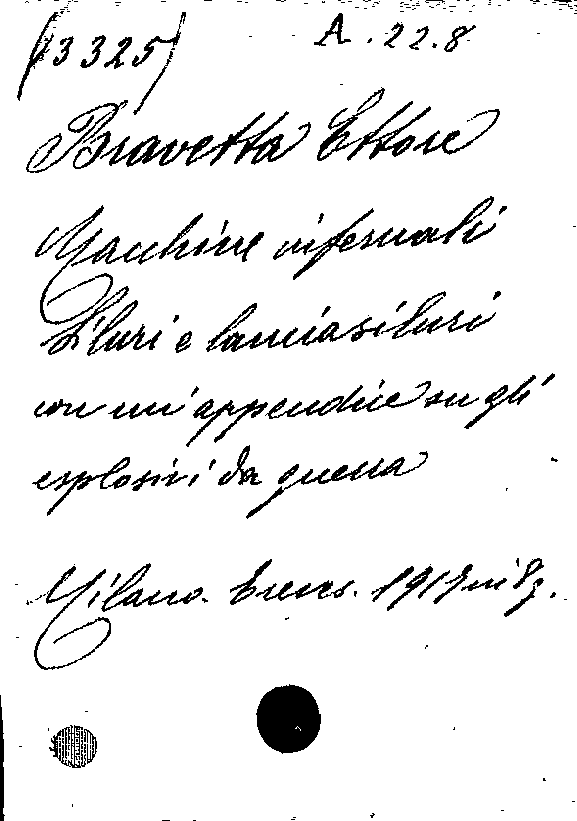 (3325) A. 22.8
Bravetta Ettore
Macchine infernali
Siluri e lanciasiluri
con un'appendice su gli
esplosivi da guerra
Milano. Treves. 1917 in 8ͦ.